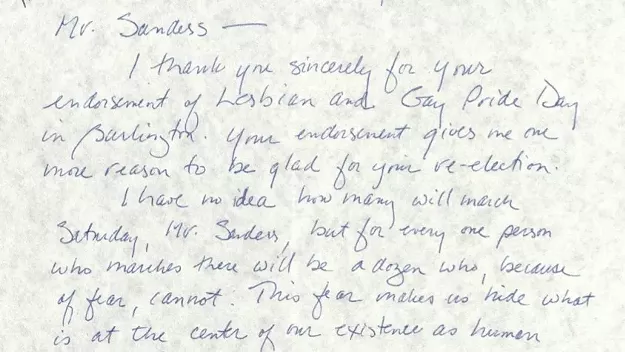 Mr. Sanders —
I thank you sincerely for your
endorsement of Lesbian and Gay Pride Day
in Burlington. Your endorsement gives me one
more reason to be glad for your re-election.
I have no idea how many will march
Saturday, Mr. Sanders, but for every one person
who marches there will be a dozen who, because
of fear, cannot. This fear makes us hide what
is at the center of our existence as human